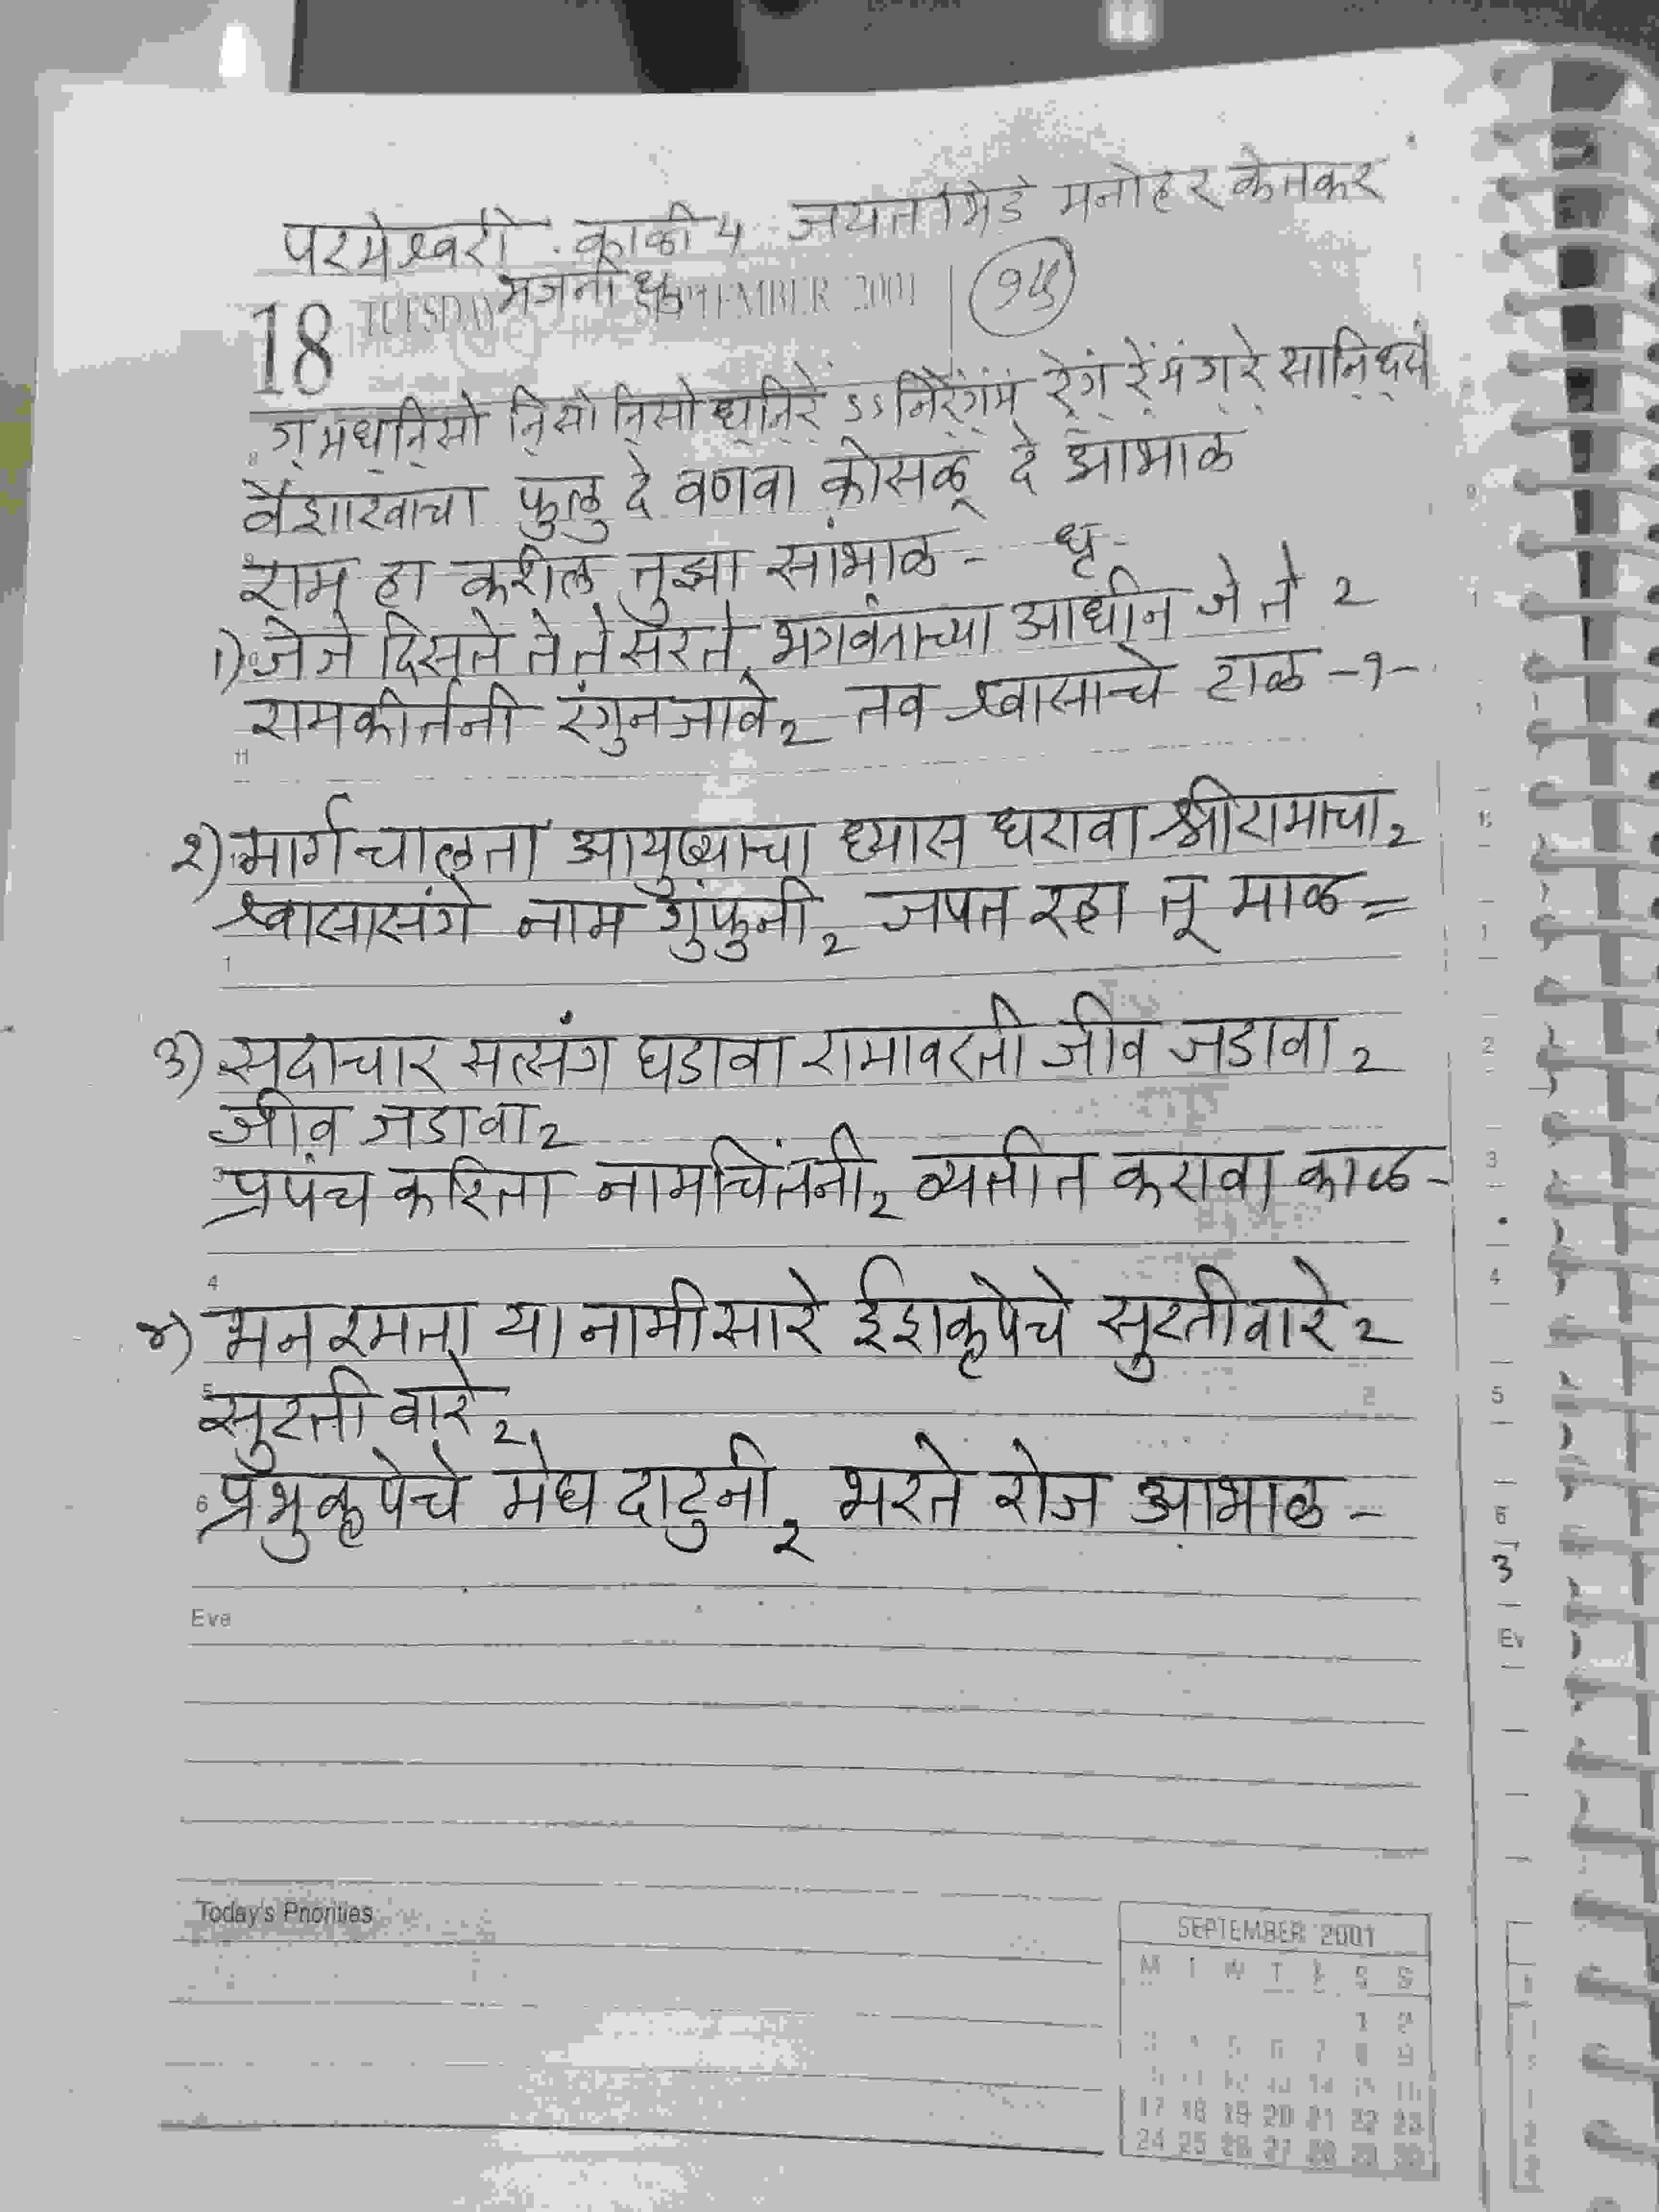 परमेश्वरी काळी 4 जयंत भिडे मनोहर केतकर
भजनी
18 TUESDAY SEPTEMBER 2001
वैशाखाचा फुलु दे वणवा कोसळू दे आभाळ
राम हा करील तुझा सांभाळ - धृ -
१) जे जे दिसते ते ते सरते, भगवंताच्या आधीन जे ते 2
रामकीर्तनी रंगुन जावे 2 तव श्वासाचे टाळ -१-
२) मार्ग चालता आयुष्याचा ध्यास धरावा श्रीरामाचा 2
श्वासासंगे नाम गुंफुनी 2 जपत रहा तू माळ =
३) सदाचार सत्संग घडावा रामावरती जीव जडावा 2
जीव जडावा 2
प्रपंच करिता नामचिंतनी 2 व्यतीत करावा काळ -
४) मन रमता या नामी सारे ईशकृपेचे सुरती वारे 2
सुरती वारे 2
प्रभुकृपेचे मेघ दाटुनी 2 भरते रोज आभाळ -
Eve
Today's Priorities
SEPTEMBER 2001
M T W T F S S
1 2
3 4 5 6 7 8 9
17 18 19 20 21 22 23
24 25 26 27 28 29 30